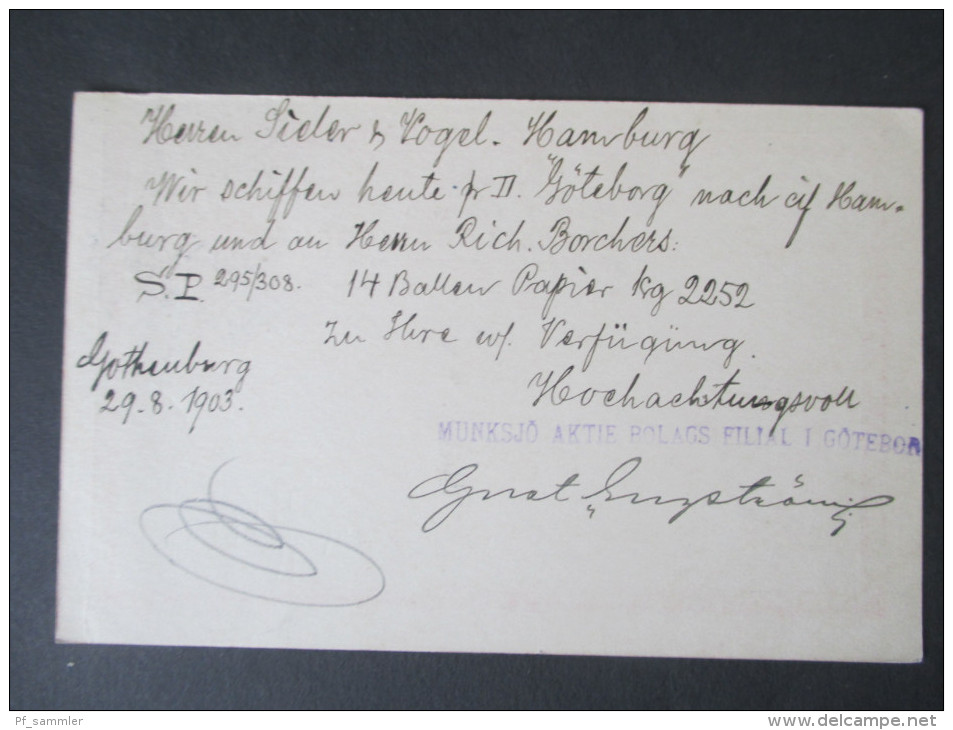 Herren Sieler & Vogel. Hamburg
Wir schiffen heute pr D. "Göteborg" nach cif Ham-
burg und an Herrn Rich. Borchers:
S.P. 295/308. 14 Ballen Papier Kg 2252
zu Ihre w/. Verfügung.
Gothenburg
29.8.1903.
Hochachtungsvoll
MUNKSJÖ AKTIE BOLAGS FILIAL I GÖTEBOR
Gust Engström
Pf_sammler
www.delcampe.net